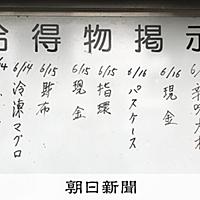 拾得物掲示
6/16 現金
6/16 パスケース
6/15 指環
6/15 現金
6/15 財布
6/14 冷凍マグロ
朝日新聞